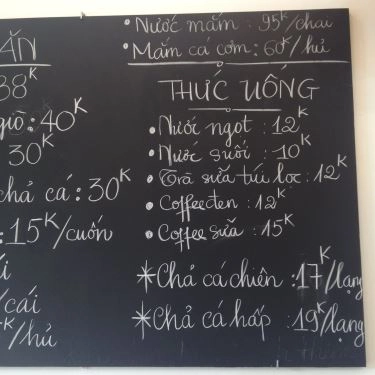 ĂN
38K
giò: 40K
30K
chả cá: 30K
: 15K/cuốn
/cái
K/hủ
• Nước mắm : 95K/chai
• Mắm cá cơm : 60K/hủ
THỨC UỐNG
• Nước ngọt : 12K
• Nước suối : 10K
• Trà sữa túi lọc : 12K
• Coffee đen : 12K
• Coffee sữa : 15K
*Chả cá chiên : 17K/lạng
*Chả cá hấp : 19K/lạng